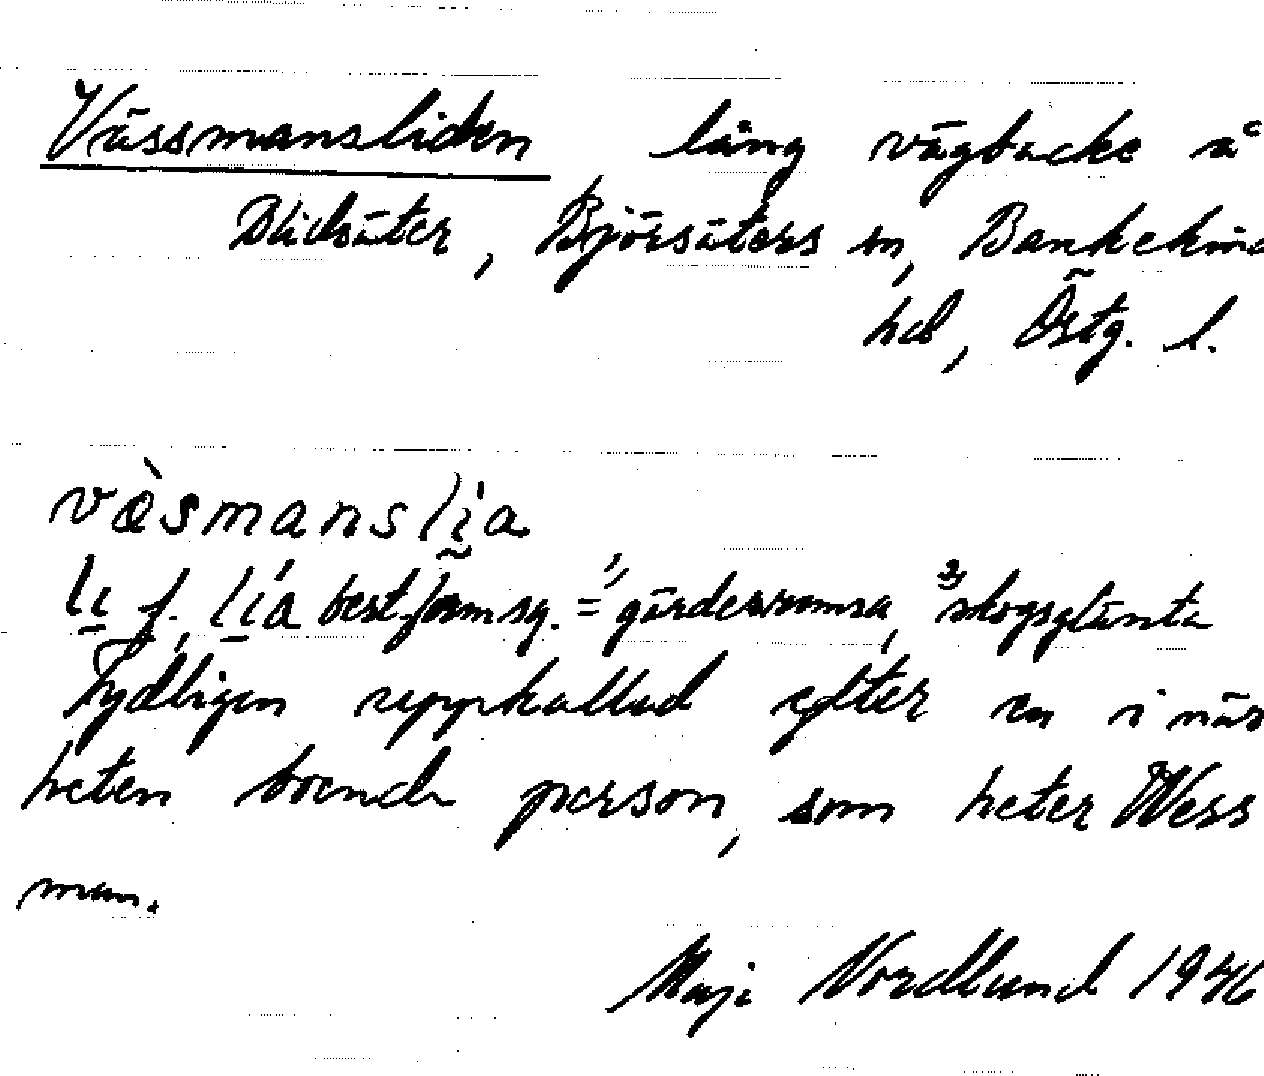 Vässmansliden lång vägbacke å
Blidsäter, Björsäters sn, Bankekind
hd, Östg. l.
vǜsmanslia
li f, lia best.form sg. = 1) gärdesremsa, 2) skogsglänta
Tydligen uppkallad efter en i när
heten boende person, som heter Wess
man.
Maji Nordlund 1946